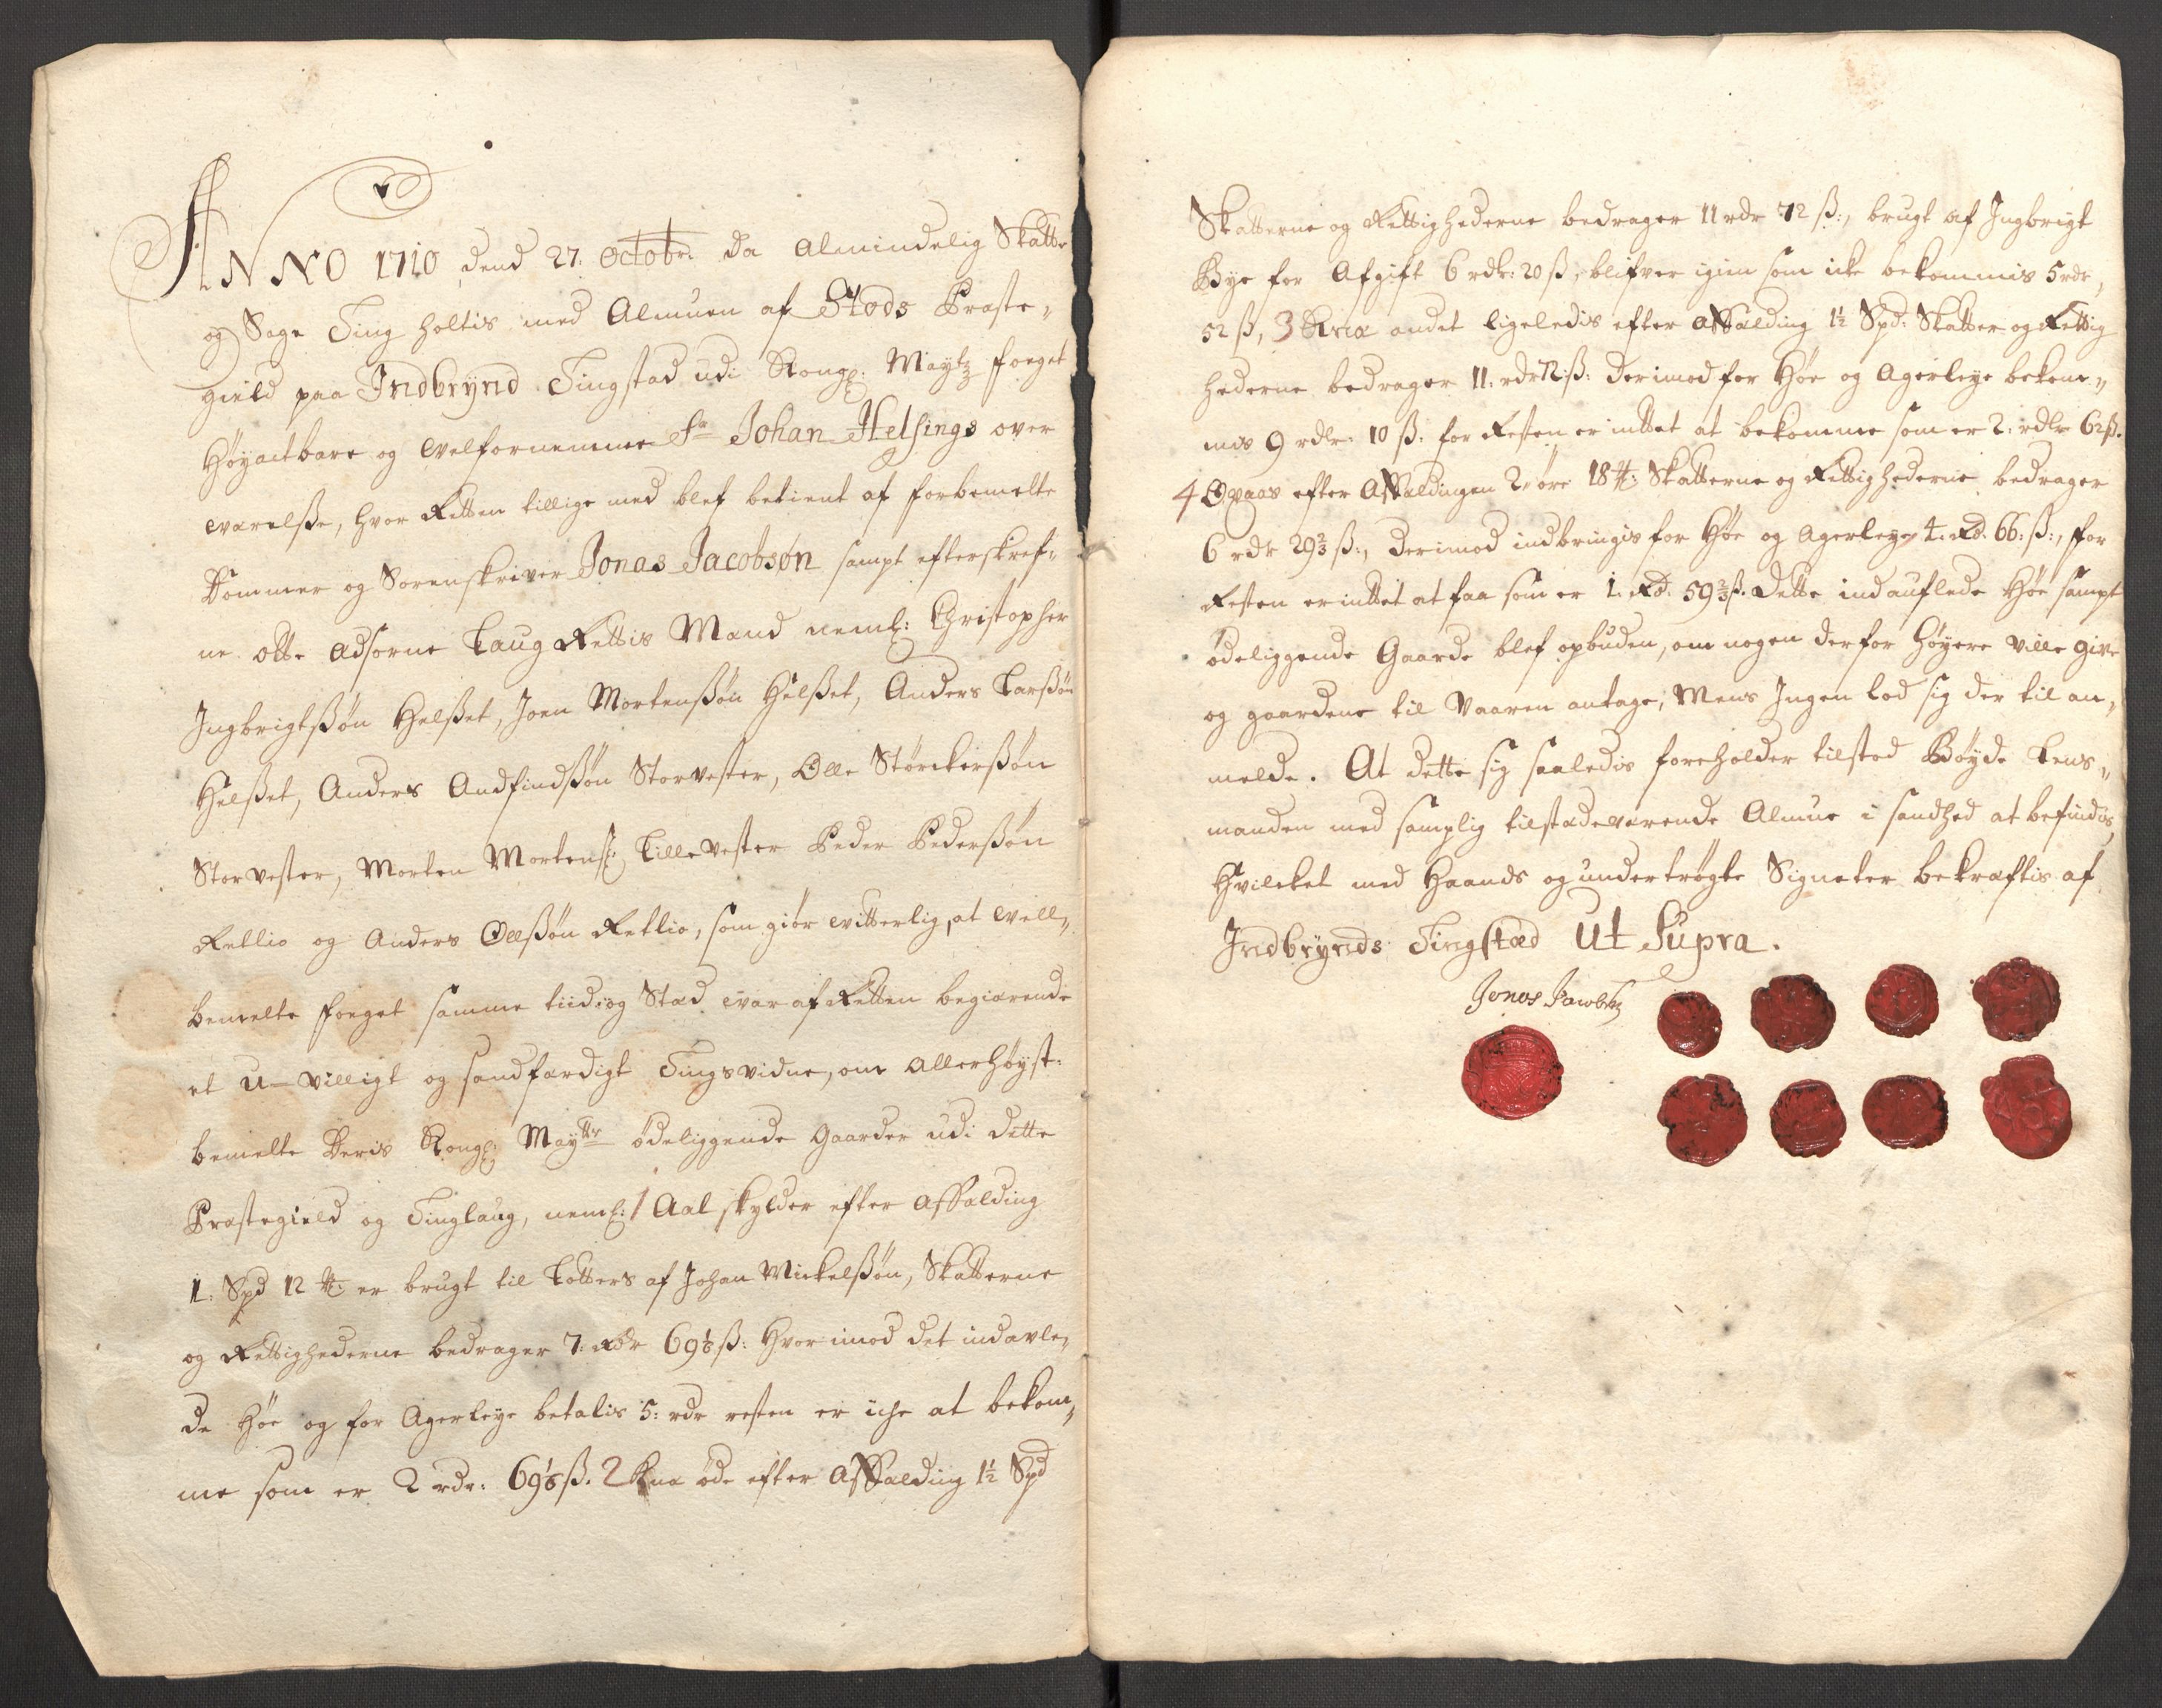 ANNO 1710 dend 27. Octobr: da Almindelig Skatte
og Sage Ting holtis med Almuen af Stods Præste-
gield paa Indbrynd Tingstad udi Kongl: Maytz foeget
Høyactbare og Welfornemme Sr Johan Helsings over
werelsse, hvor Retten tillige med blef betient af forbemelte
Dommer og Sorenskriver Jonas Jacobsøn sampt efterskref-
ne otte Adsorne Laug Rettis Mænd neml: Christopher
Ingbrigtssøn Helsset, Joen Mortenssøn Helsset, Anders Larssøn
Helsset, Anders Andfindssøn Storvester, Olle Størckerssøn
Storvester, Morten Mortens: Lillevester Peder Pederssøn
Rellio og Anders Olssøn Rellio, som giør witterlig, at well-
bemelte foeget samme tiid og Stæd war af Retten begiærende
et U-villigt og sandfærdigt Tingsvidne, om Allerhøyst-
bemelte Deris Kongl: Maytts ødeliggende Gaarder udi dette
Præstegield og Tinglaug, neml: 1 Aal skylder efter Affælding
1. Spd 12 ℔: er brugt til Lotters af Johan Mickelssøn, Skatterne
og Rettighederne bedrager 7: Rdr 69⅙ ß: Hvorimod det indavle-
de Høe og for Agerleye betalis 5: rdr resten er iche at bekom-
me som er 2 rdr: 69⅙ ß. 2 Kna øde efter Affælding 1½ Spd
Skatterne og Rettighederne bedrager 11 rdr 72 ß:, brugt af Ingbrigt
Bye for Afgift 6 rdr: 20 ß, blifver igien som icke bekommis 5 rdr,
52 ß, 3 Kna andet ligeledis efter Affælding 1½ Spd: Skatter og Rettig
hederne bedrager 11: rdr 72: ß: derimod for Høe og Agerleye bekom-
mis 9 rdlr: 10 ß: for Resten er inttet at bekomme som er 2: rdlr 62 ß.
4 Qvaas efter Affældingen 2 øre 18 ℔: Skatterne og Rettighederne bedrager
6 rdr 29⅔ ß:, derimod indbringis for Høe og Agerleye 4. Rd. 66: ß:, for
Resten er inttet at faa som er 1. Rd. 59⅔ ß. Dette indauflede Høe sampt
ødeliggende Gaarde blef opbuden, om nogen derfor høyere ville give
og gaardene til Vaaren antage, Mens Ingen lod sig der til an-
melde. At dette sig saaledis foreholder tilstod Bøyde Lens-
manden med samptlig tilstædeværende Almue i sandhed at befindis,
Hvilcket med Haands og undertrøgte Signeter bekræftis af
Indbrynds Tingstæd Ut Supra.
Jonas Jacobsøn